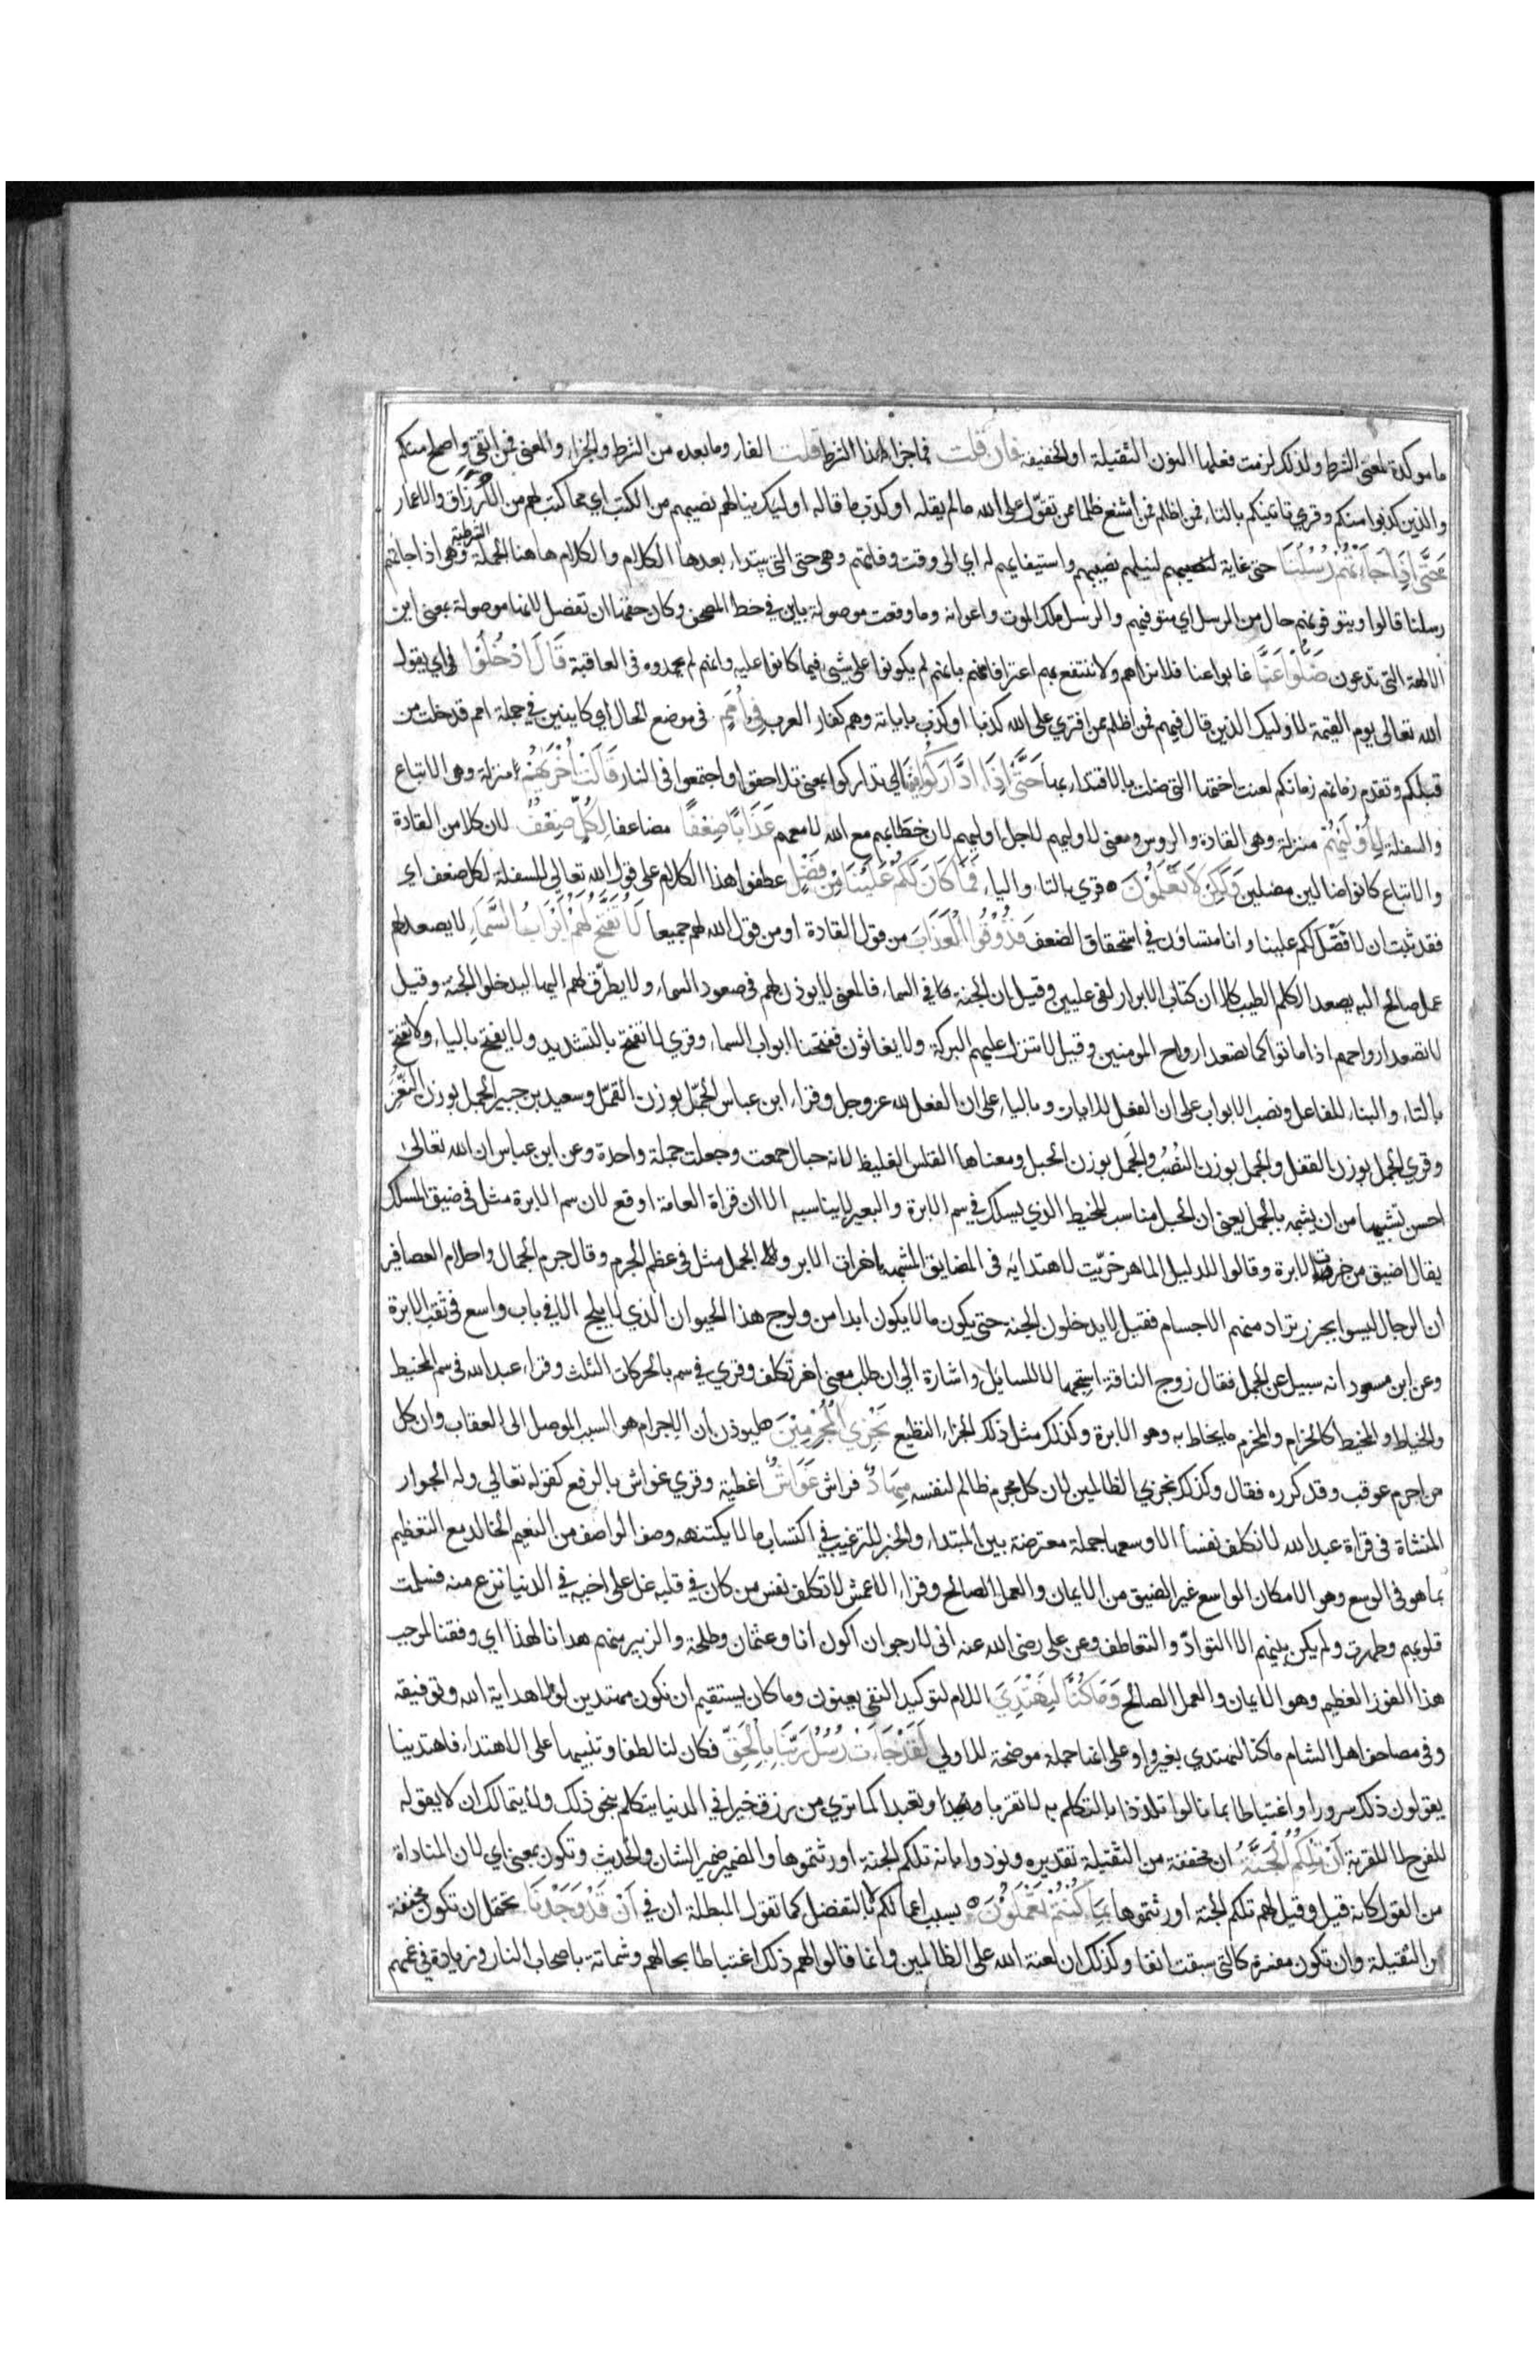 ما موكدة لمعنى الشرط ولذلك لزمت فعلها النون الثقيلة او الخفيفة فان قلت فما جزا هذا الشرط قلت الفا وما بعده من الشرط والجزاء والمعنى فمن اتقى واصلح منكم
والذين كذبوا منكم وقري تاتينكم بالتاء فمن اظلم فمن اشنع ظلما ممن تقوّل على الله ما لم يقله او كذب ما قاله اوليك ينالهم نصيبهم من الكتب اي مما كتب لهم من الارزاق والاعمار
حَتَّى اِذَا جَاءَتْهُمْ رُسُلُنَا حتى غاية لنيلهم نصيبهم واستيفايهم له اي الى وقت وفاتهم وهى حتى التى يبتداء بعدها الكلام والكلام هاهنا الجملة الشرطية وهى اذا جاتهم
رسلنا قالوا ويتوفونهم حال من الرسل اي متوفيهم والرسل ملك الموت واعوانه وما وقعت موصولة باين في خط المصحف وكان حقها ان تفصل لانها موصولة بمعنى اين
الالهة التى تدعون ضَلُّوْا عَنَّا غابوا عنا فلا نراهم ولا ننتفع بهم اعترافا منهم بانهم لم يكونوا على شيء فيما كانوا عليه وانهم لم يحمدوه فى العاقبة قَالَ ادْخُلُوْا في اي يقول
الله تعالى يوم القيمة لاوليك الذين قال فيهم فمن اظلم ممن افترى على الله كذبا او كذب باياته وهم كفار العرب فِي اُمَمٍ فى موضع الحال اي كاينين في جملة امم قد خلت من
قبلكم وتقدم زمانهم زمانكم لعنت اختها التى ضلت بالاقتداء بها حَتَّى اِذَا ادَّارَكُوْا فِيْهَا اي تداركوا بمعنى تلاحقوا واجتمعوا فى النار قَالَتْ اُخْرٰىهُمْ منزلة وهى الاتباع
والسفلة لِاُوْلٰىهُمْ منزلة وهى القادة والروس ومعنى لاوليهم لاجل اوليهم لان خطابهم مع الله لا معهم عَذَابًا ضِعْفًا مضاعفا لِكُلٍّ ضِعْفٌ لان كلا من القادة
والاتباع كانوا ضالين مضلين وَلٰكِنْ لَا تَعْلَمُوْنَ قري بالتاء والياء فَمَا كَانَ لَكُمْ عَلَيْنَا مِنْ فَضْلٍ عطفوا هذا الكلام على قول الله تعالى للسفلة لكل ضعف اي
فقد ثبت ان لا فضل لكم علينا وانا متساوون في استحقاق الضعف فَذُوْقُوا الْعَذَابَ من قول القادة او من قول الله لهم جميعا لَا تُفَتَّحُ لَهُمْ اَبْوَابُ السَّمَاءِ لا يصعد لهم
عمل صالح اليه يصعد الكلم الطيب كلا ان كتاب الابرار لفى عليين وقيل ان الجنة فى السماء فالمعنى لا يوذن لهم فى صعود السماء ولا يطرّق لهم اليها ليدخلوا الجنة وقيل
لا تصعد ارواحهم اذا ماتوا كما تصعد ارواح المومنين وقيل لا تنزل عليهم البركة ولا يغاثون ففتحنا ابواب السماء وقري لا تفتح بالتشديد ولا يفتح بالياء ولا تفتح
بالتاء والبناء للفاعل ونصب الابواب على ان الفعل للايات وبالياء على ان الفعل لله عز وجل وقراء ابن عباس الجمّل بوزن القمّل وسعيد بن جبير الجمل بوزن النغر
وقري الجمل بوزن القفل والجمل بوزن النصب والجمل بوزن الحبل ومعناها القلس الغليظ لانه حبال جمعت وجعلت جملة واحدة وعن ابن عباس ان الله تعالى
احسن تشبيها من ان يشبه بالجمل يعنى ان الحبل مناسب للخيط الذي يسلك في سم الابرة والبعير لا يناسبه الا ان قراة العامة اوقع لان سم الابرة مثل فى ضيق المسلك
يقال اضيق من خرت الابرة وقالوا للدليل الماهر خرّيت لاهتدايه فى المضايق المشبهة باخرات الابر والجمل مثل فى عظم الجرم وقال جرم الجمال واحلام العصافير
ان الرجال ليسوا بجزر تراد منهم الاجسام فقيل لا يدخلون الجنة حتى يكون ما لا يكون ابدا من ولوج هذا الحيوان الذي لا يلج الا في باب واسع فى ثقب الابرة
وعن ابن مسعود انه سيل عن الجمل فقال زوج الناقة استجهالا للسايل واشارة الى ان طلب معنى اخر تكلف وقري في سم بالحركات الثلث وقراء عبد الله فى سم المخيط
والخياط والمخيط كالحزام والمحزم ما يخاط به وهو الابرة وكذلك مثل ذلك الجزاء الفظيع نَجْزِي الْمُجْرِمِيْنَ ليوذن بان الاجرام هو السبب الموصل الى العقاب وان كل
من اجرم عوقب وقد كرره فقال وكذلك نجزي الظالمين لان كل مجرم ظالم لنفسه مِهَادٌ فراش غَوَاشٍ اغطية وقري غواش بالرفع كقوله تعالى وله الجوار
المنشاة فى قراة عبد الله لا نكلف نفسا الا وسعها جملة معترضة بين المبتداء والخبر للترغيب في اكتساب ما لا يكتنهه وصف الواصف من النعيم الخالد مع التعظيم
بما هو فى الوسع وهو الامكان الواسع غير الضيق من الايمان والعمل الصالح وقراء الاعمش لا تكلف نفس من كان في قلبه غل على اخيه في الدنيا نزع منه فسلمت
قلوبهم وطهرت ولم يكن بينهم الا التوادّ والتعاطف وعن على رضى الله عنه انى لارجو ان اكون انا وعثمان وطلحة والزبير منهم هدانا لهذا اي وفقنا لموجب
هذا الفوز العظيم وهو الايمان والعمل الصالح وَمَا كُنَّا لِنَهْتَدِيَ اللام لتوكيد النفى يعنون وما كان يستقيم ان نكون مهتدين لولا هداية الله وتوفيقه
وفى مصاحف اهل الشام ما كنا لنهتدي بغير واو على انها جملة موضحة للاولى لَقَدْ جَاءَتْ رُسُلُ رَبِّنَا بِالْحَقِّ فكان لنا لطفا وتنبيها على الاهتداء فاهتدينا
يقولون ذلك سرورا واغتباطا بما نالوا وتلذذا بالتكلم به لا تقربا وتعبدا كما تري من رزق خيرا في الدنيا يتكلم بنحو ذلك ولا يتمالك ان لا يقوله
للفرح لا للقربة اَنْ تِلْكُمُ الْجَنَّةُ ان مخففة من الثقيلة تقديره ونودوا بانه تلكم الجنة اورثتموها والضمير ضمير الشان والحديث وتكون بمعنى اي لان المناداة
من القول كانه قيل وقيل لهم تلكم الجنة اورثتموها بِمَا كُنْتُمْ تَعْمَلُوْنَ بسبب اعمالكم لا بالتفضل كما تقول المبطلة ان في اَنْ قَدْ وَجَدْنَا يحتمل ان تكون مخففة
من الثقيلة وان تكون مفسرة كالتى سبقت انفا وكذلك ان لعنة الله على الظالمين وانما قالوا لهم ذلك اغتباطا بحالهم وشماتة باصحاب النار وزيادة في غمهم